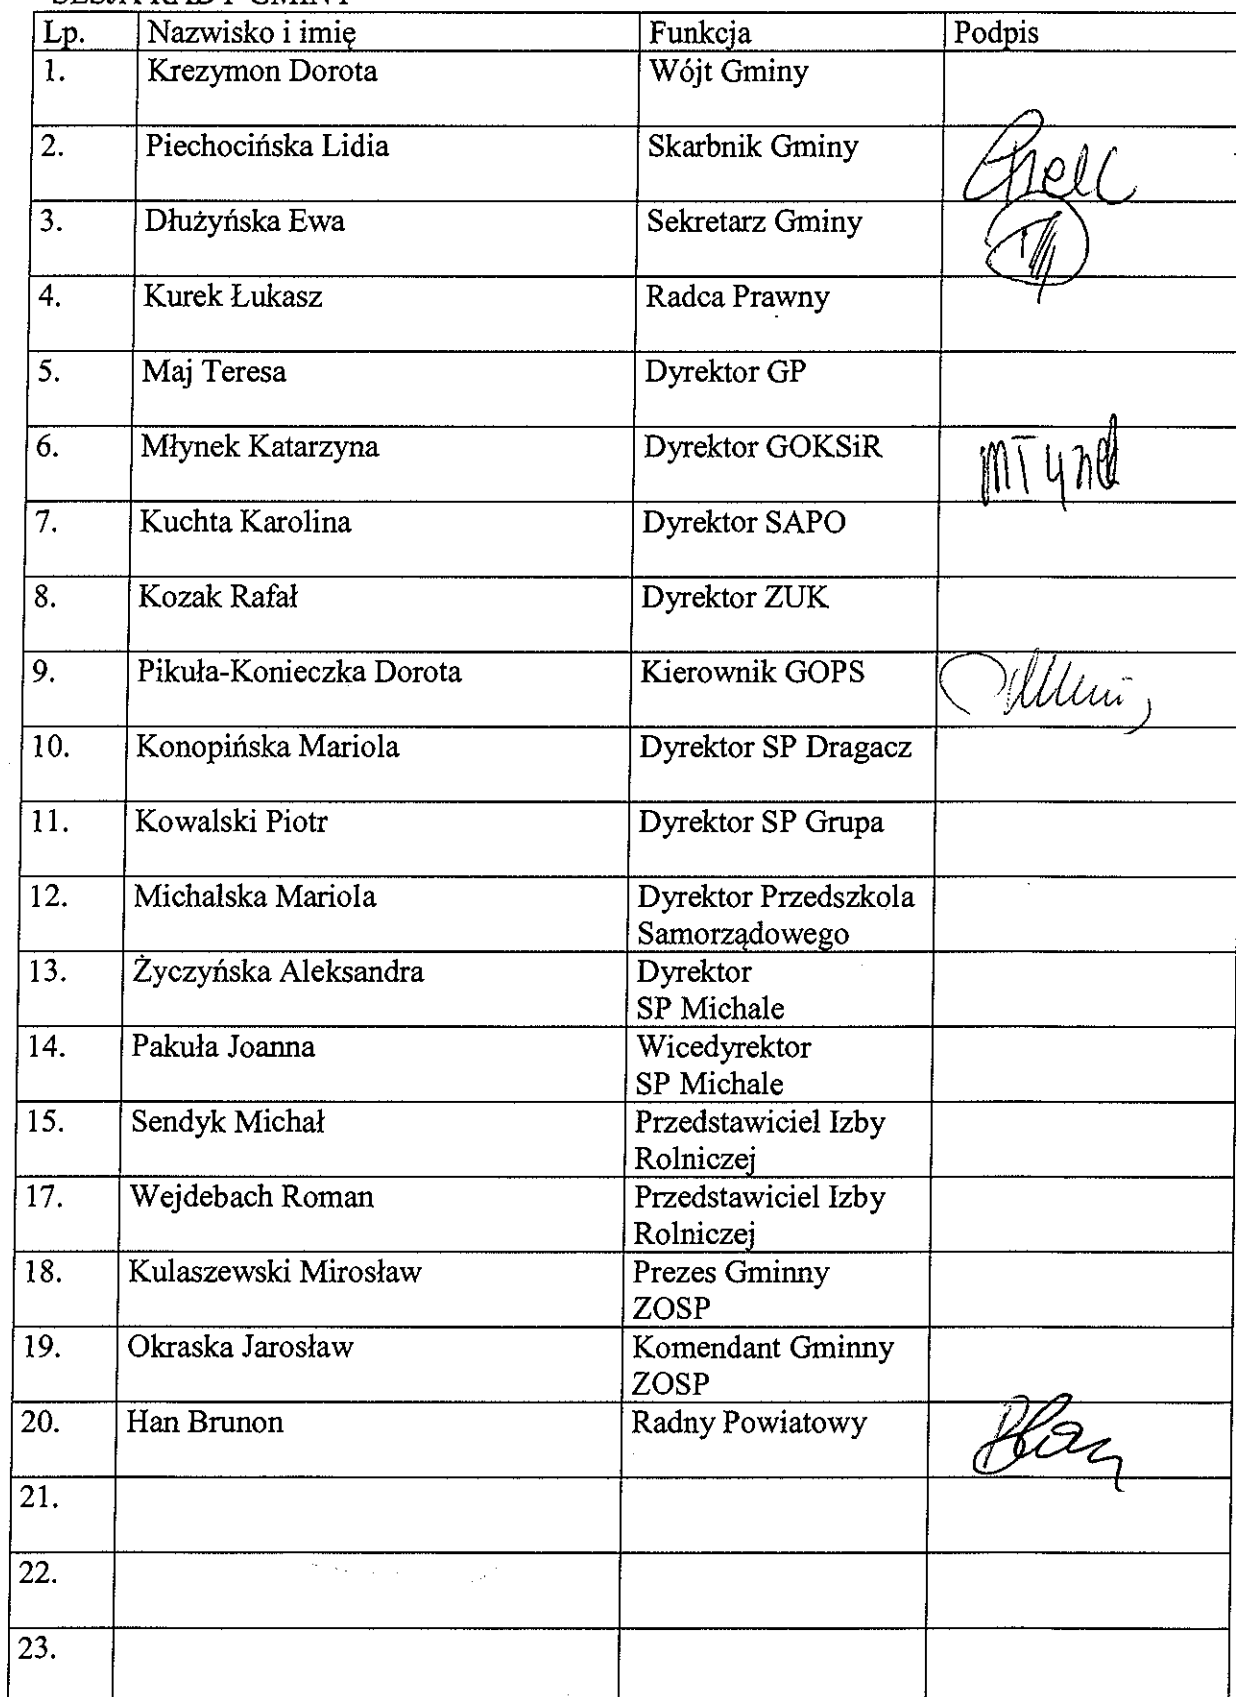 SESJA RADY GMINY
Lp. Nazwisko i imię Funkcja Podpis
1. Krezymon Dorota Wójt Gminy
2. Piechocińska Lidia Skarbnik Gminy
3. Dłużyńska Ewa Sekretarz Gminy
4. Kurek Łukasz Radca Prawny
5. Maj Teresa Dyrektor GP
6. Młynek Katarzyna Dyrektor GOKSiR
7. Kuchta Karolina Dyrektor SAPO
8. Kozak Rafał Dyrektor ZUK
9. Pikuła-Konieczka Dorota Kierownik GOPS
10. Konopińska Mariola Dyrektor SP Dragacz
11. Kowalski Piotr Dyrektor SP Grupa
12. Michalska Mariola Dyrektor Przedszkola
Samorządowego
13. Życzyńska Aleksandra Dyrektor
SP Michale
14. Pakuła Joanna Wicedyrektor
SP Michale
15. Sendyk Michał Przedstawiciel Izby
Rolniczej
17. Wejdebach Roman Przedstawiciel Izby
Rolniczej
18. Kulaszewski Mirosław Prezes Gminny
ZOSP
19. Okraska Jarosław Komendant Gminny
ZOSP
20. Han Brunon Radny Powiatowy
21.
22.
23.